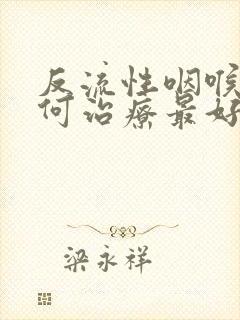 反流性咽喉
何治疗最好
梁永祥